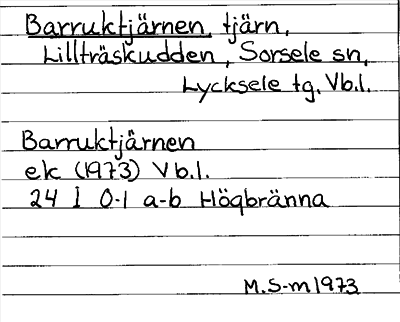 Barruktjärnen, tjärn,
Lillträskudden, Sorsele sn,
Lycksele tg, Vb.l.
Barruktjärnen
ek (1973) Vb.l.
24 I 0-1 a-b Högbränna
M.S-m 1973